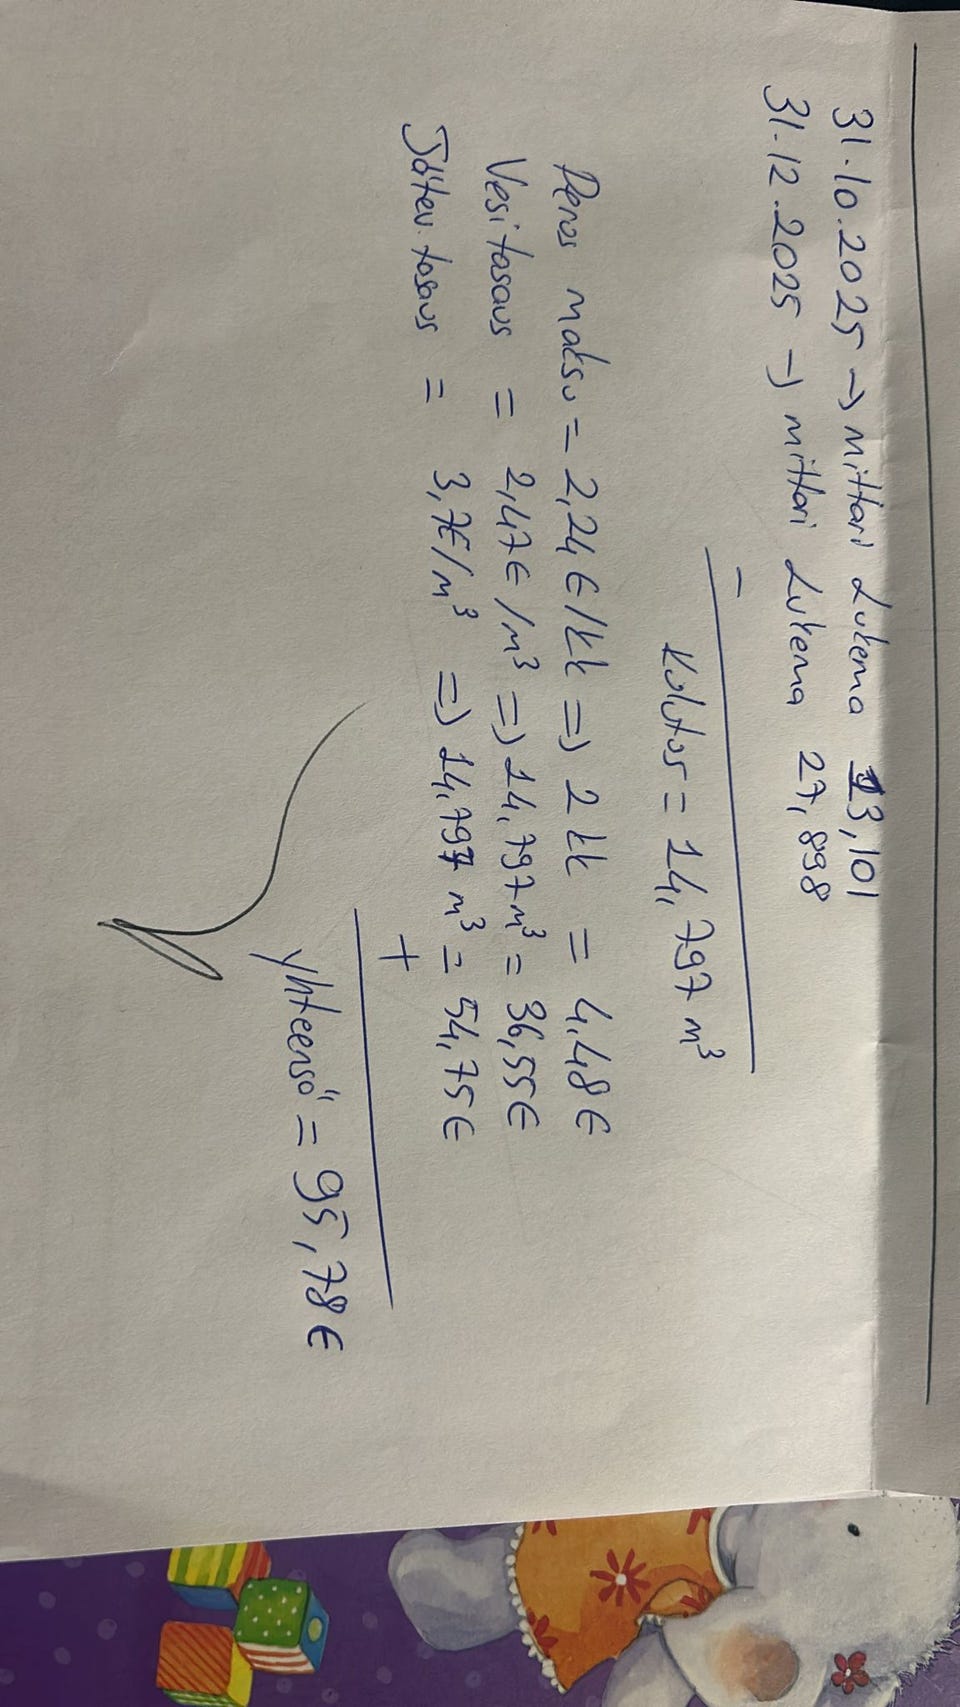 31.10.2025 → mittari Lukema 13,101
31.12.2025 → mittari Lukema 27,898
−
kulutus = 14,797 m³
Perus maksu = 2,24€/kk => 2 kk = 4,48€
Vesitasaus = 2,47€/m³ => 14,797m³ = 36,55€
Jätev.tasaus = 3,7€/m³ => 14,797 m³ = 54,75€
+
yhteensä = 95,78€